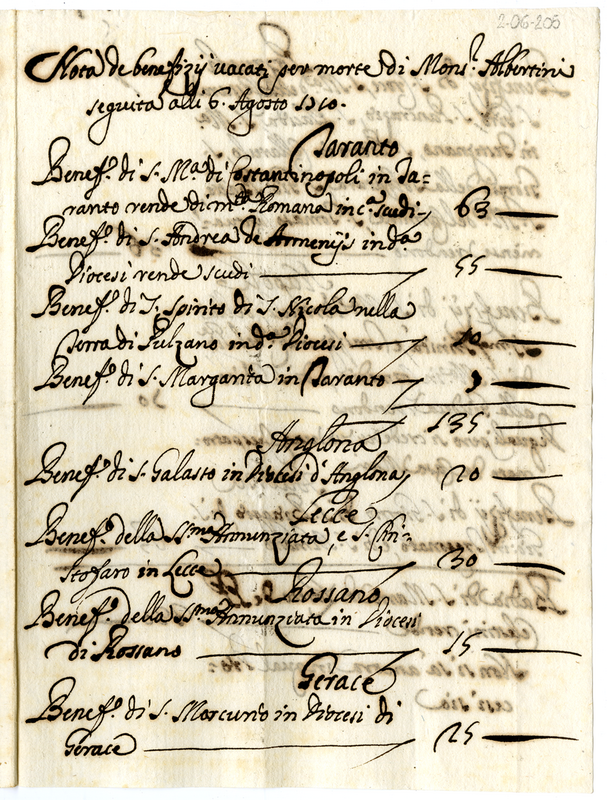 2-06-205
Nota de benefizij vacati per morte di Mons.r Albertini
seguita alli 6. Agosto 1710.
Taranto
Benef.o di S. M.a di Costantinopoli in Ta=
ranto rende di m.ta Romana in c.a scudi 63
Benef.o di S. Andrea de Armenijs in d.a
Diocesi rende scudi 55
Benef.o di S. Spirito di S. Nicola nella
Terra di Pulzano in d.a Diocesi 10
Benef.o di S. Margarita in Taranto
135
Anglona
Benef.o di S. Galasto in Diocesi d'Anglona 20
Lecce
Benef.o della SS.ma Annunziata, e S. Chri=
stofaro in Lecce 30
Rossano
Benef.o della SS.ma Annunziata in Diocesi
di Rossano 15
Gerace
Benef.o di S. Mercurio in Diocesi di
Gerace 25